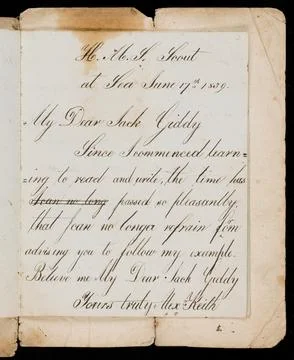 H. M. S. Scout
at Sea June 17th 1839.
My Dear Jack Giddy
Since I commenced learn=
=ing to read and write, the time has
passed so pleasantly,
that I can no longer refrain from
advising you to follow my example.
Believe me My Dear Jack Giddy
Yours truly Alexr Keith